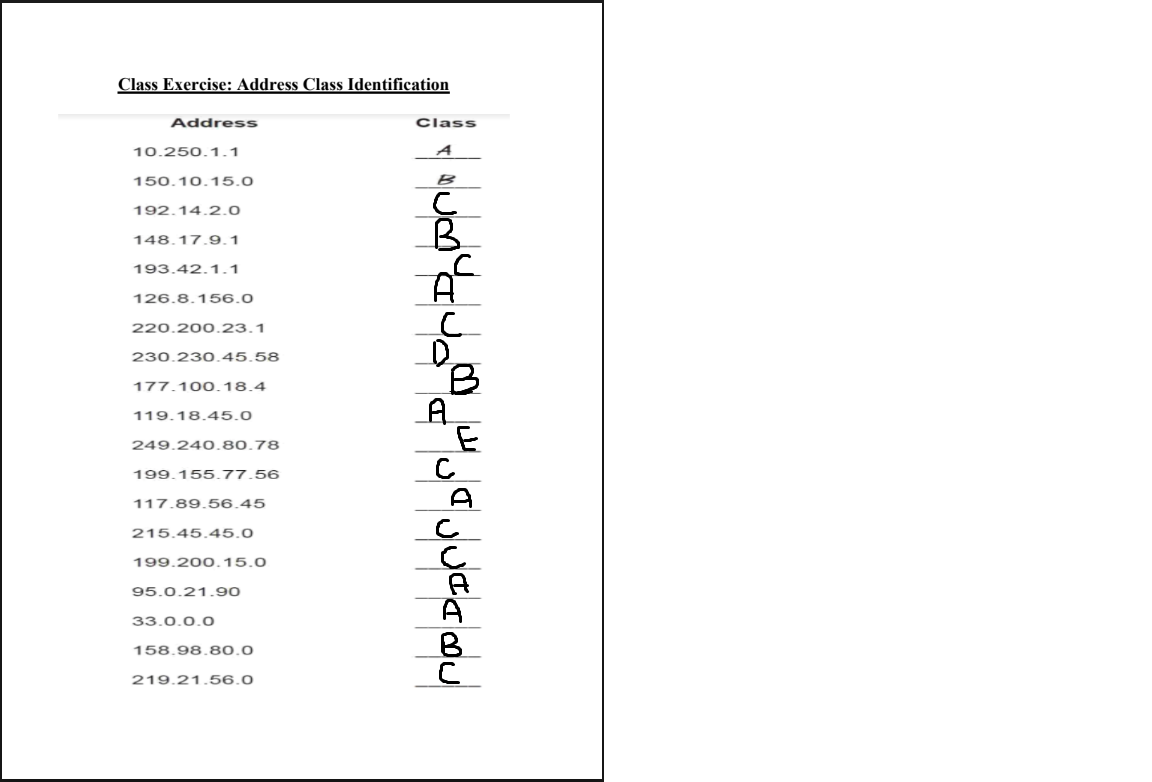 Class Exercise: Address Class Identification
Address Class
10.250.1.1 A
150.10.15.0 B
192.14.2.0 C
148.17.9.1 B
193.42.1.1 C
126.8.156.0 A
220.200.23.1 C
230.230.45.58 D
177.100.18.4 B
119.18.45.0 A
249.240.80.78 E
199.155.77.56 C
117.89.56.45 A
215.45.45.0 C
199.200.15.0 C
95.0.21.90 A
33.0.0.0 A
158.98.80.0 B
219.21.56.0 C